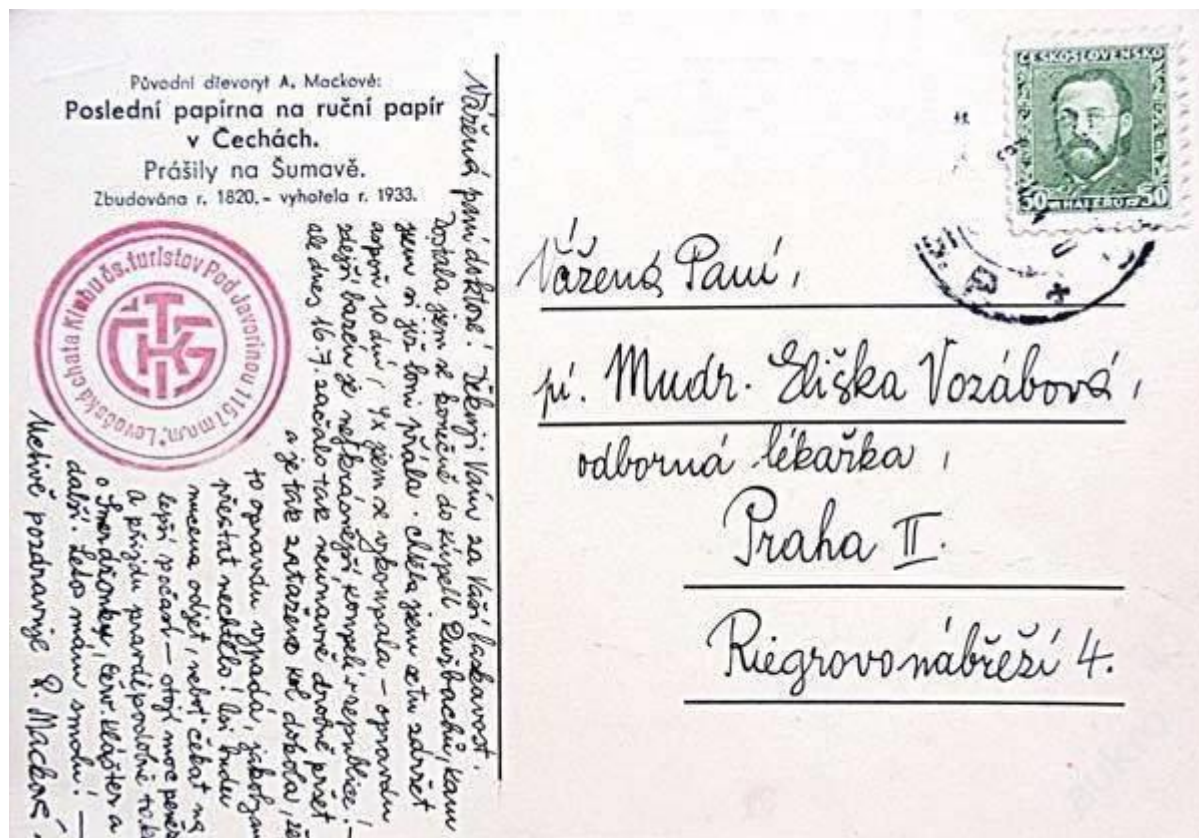 Původní dřevoryt A. Mackové:
Poslední papírna na ruční papír
v Čechách.
Prášily na Šumavě.
Zbudována r. 1820. - vyhořela r. 1933.
Levočská chata Klubu čs. turistov Pod Javorinou 1157 m n.
KČST
Vážená paní doktore! Děkuji Vám za Vaši laskavost.
Dostala jsem se konečně do kúpelí Ružbachů, kam
jsem si již loni přála. chtěla jsem se tu zdržet
aspoň 10 dní, 4x jsem se vykoupala – opravdu
zdejší bazén je nejkrásnější koupelí v republice! –
ale dnes 16.7. začalo tak neúnavně drobně pršet
a je tak zataženo kol dokola, že
to opravdu vypadá, jakoby
přestat nechtělo! Asi budu
nucena odjet, neboť čekat na
lepší počasí – stojí moc peněz
a přijdu pravděpodobně
o Smerdžonky, Červ. klášter a
další. Letos mám smolu! –
Uctivě pozdravuje R. Macková.
ČESKOSLOVENSKO
50 HALÉŘŮ 50
Vážená Paní,
pí. Mudr. Eliška Vozábová,
odborná lékařka,
Praha II.
Riegrovo nábřeží 4.
aukro